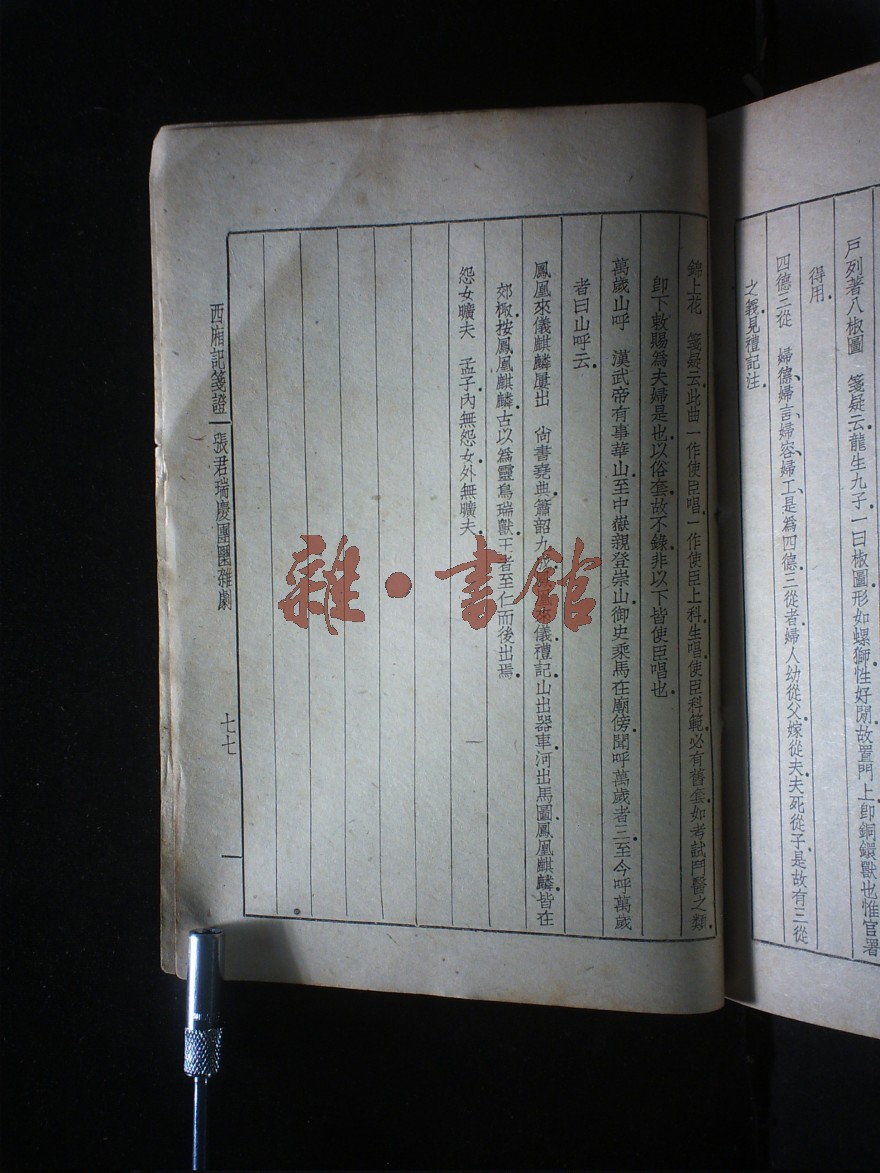 戶列著八椒圖　箋疑云龍生九子一曰椒圖形如螺獅性好閉故置門上卽銅鐶獸也惟官署
得用
四德三從　婦德婦言婦容婦工是爲四德三從者婦人幼從父嫁從夫夫死從子是故有三從
之義見禮記注
錦上花　箋疑云此曲一作使臣唱一作使臣上科生唱使臣科範必有舊套如考試鬥醫之類
卽下敕賜爲夫婦是也以俗套故不錄非以下皆使臣唱也
萬歲山呼　漢武帝有事華山至中嶽親登崇山御史乘馬在廟傍聞呼萬歲者三至今呼萬歲
者曰山呼云
鳳凰來儀麒麟屢出　尙書堯典簫韶九來儀禮記山出器車河出馬圖鳳凰麒麟皆在
郊棷按鳳凰麒麟古以爲靈鳥瑞獸王者至仁而後出焉
怨女曠夫　孟子內無怨女外無曠夫
西廂記箋證　張君瑞慶團圞雜劇　七七
雜·書館